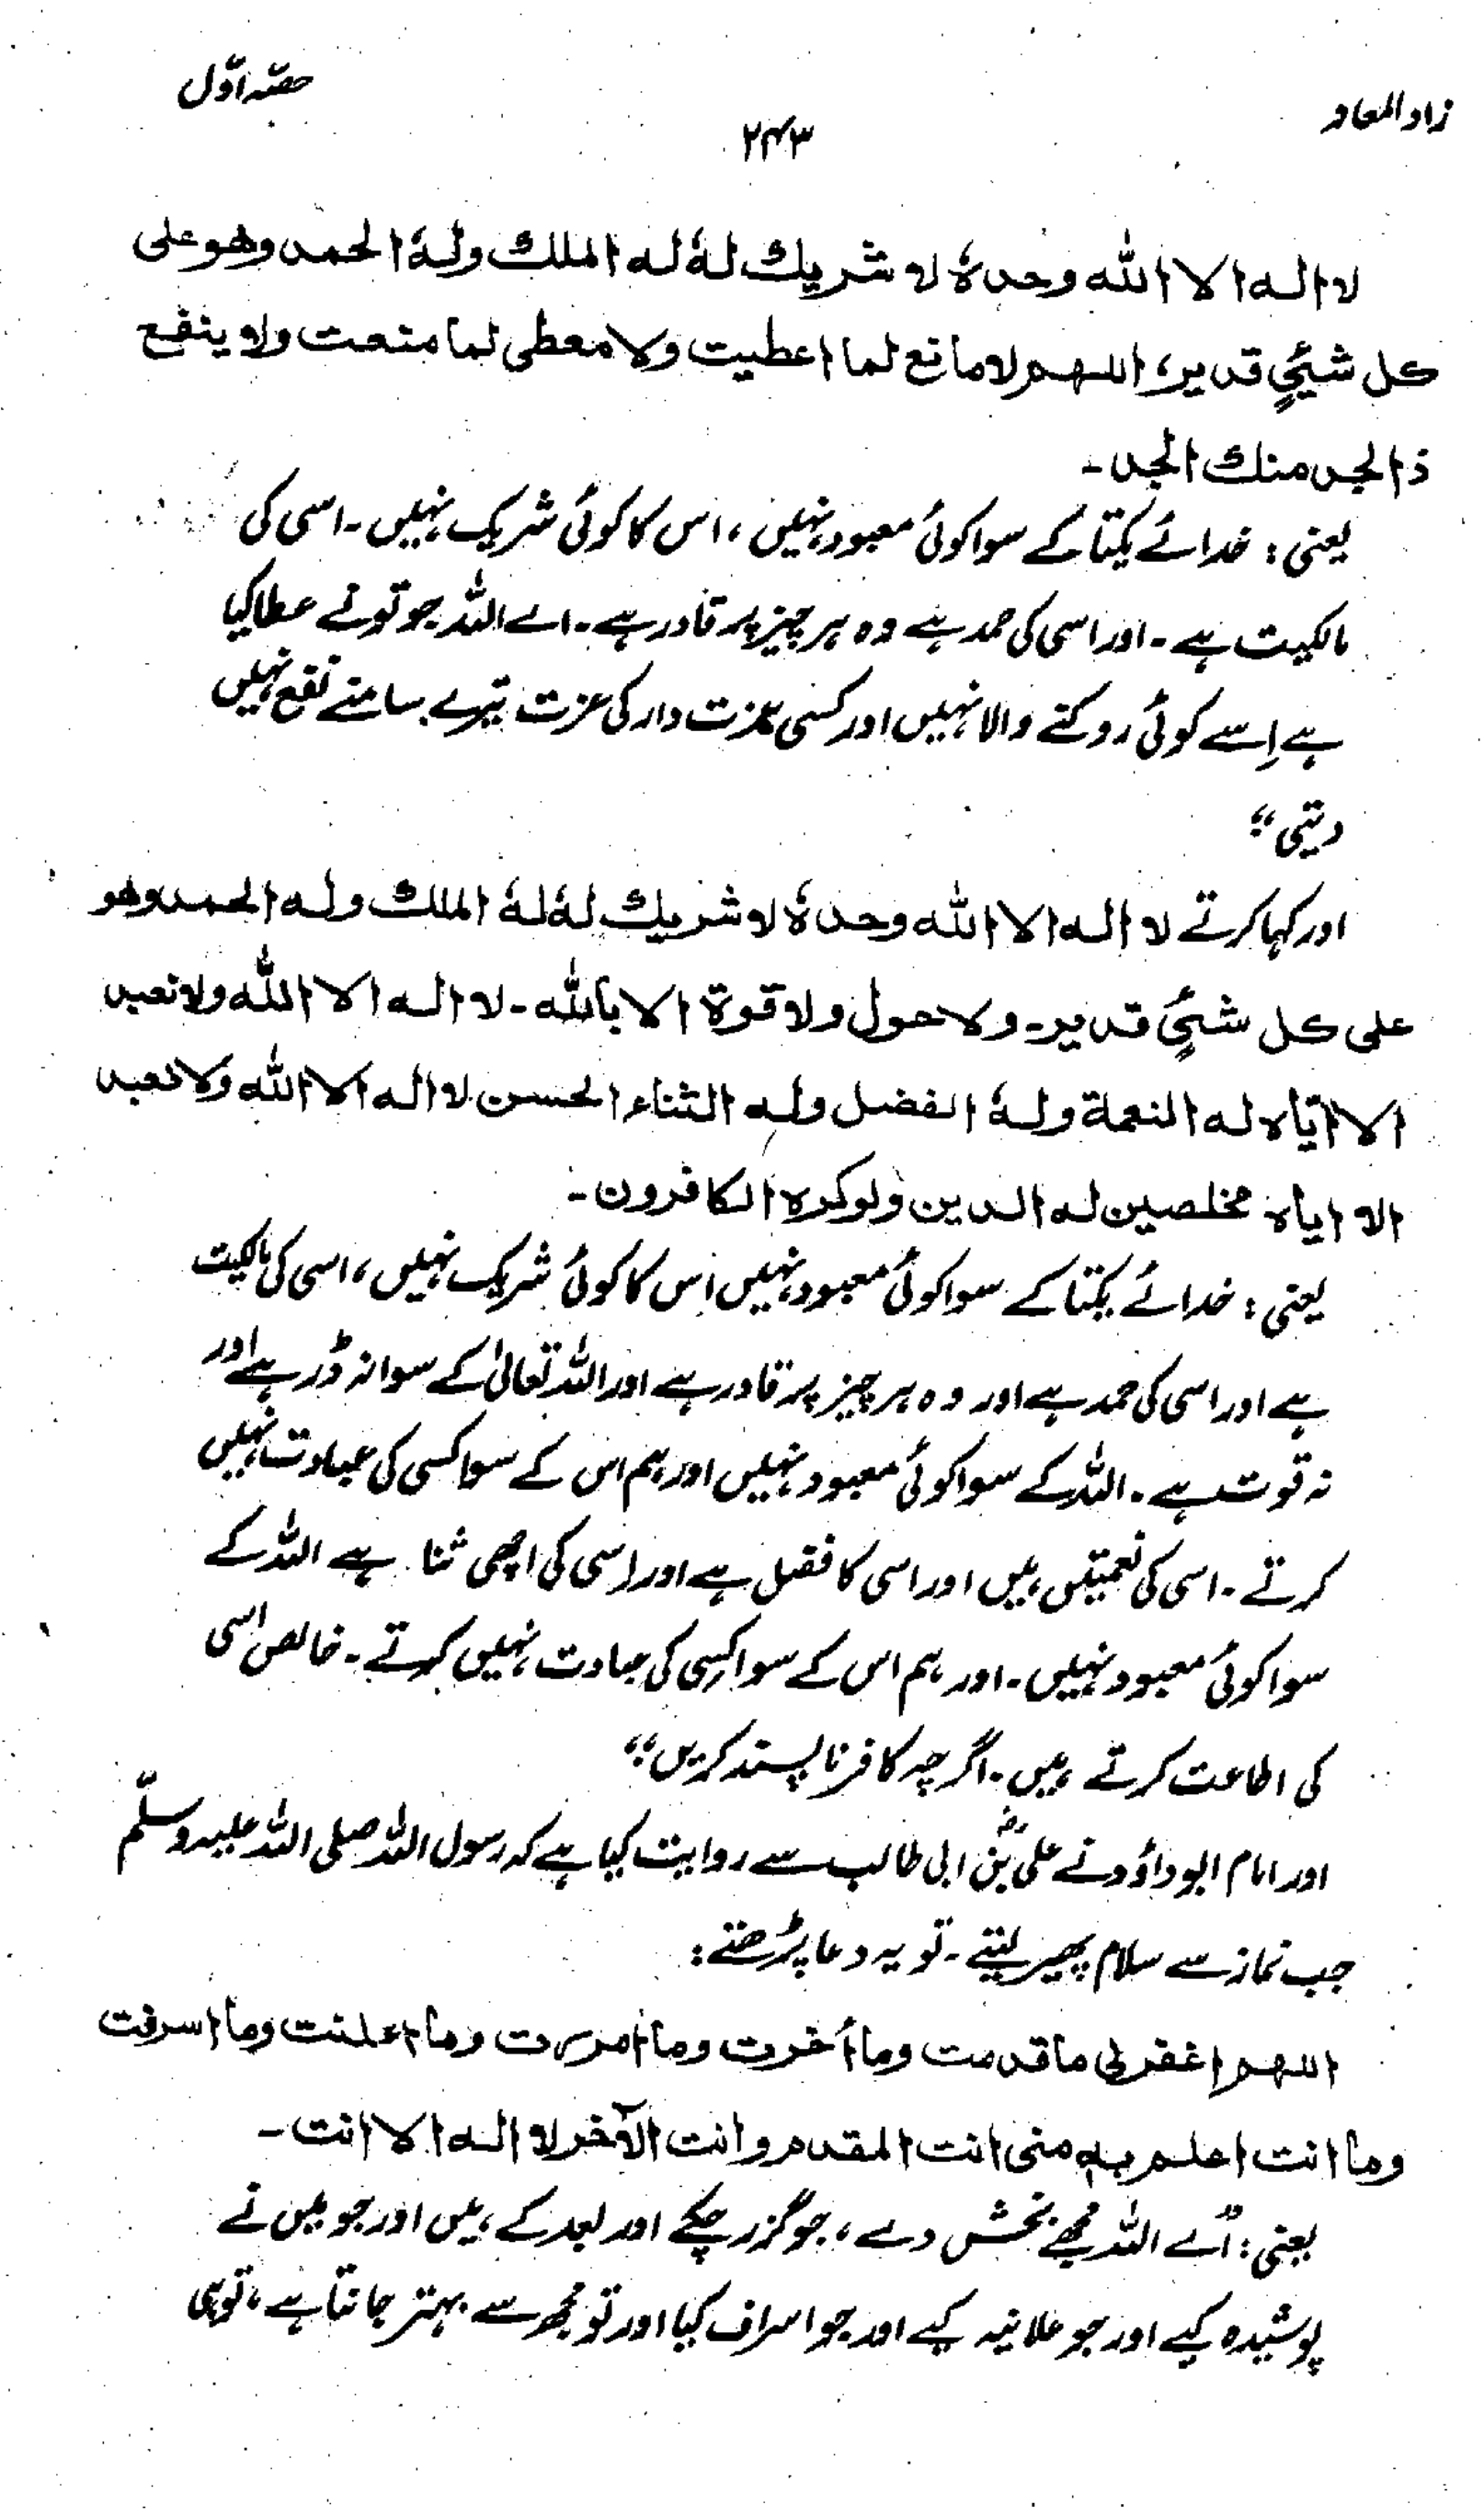 زاد المعاد
حصّہ اوّل
۲۴۳
لا اله الا الله وحدهٗ لا شريك لهٗ له الملك ولهٗ الحمد وهو على
كل شيئٍ قدير، اللهم لا مانع لما اعطيت ولا معطى لما منعت ولا ينفع
ذا الجد منك الجد۔
یعنی: خدائے یکتا کے سوا کوئی معبود نہیں، اس کا کوئی شریک نہیں۔ اسی کی
مالکیت ہے۔ اور اسی کی حمد ہے وہ ہر چیز پر قادر ہے۔ اے اللہ جو تونے عطا کیا
ہے اِسے کوئی روکنے والا نہیں اور کسی عزت دار کی عزت تیرے سامنے نفع نہیں
دیتی“
اور کہا کرتے لا اله الا الله وحدهٗ لا شريك لهٗ لهٗ الملك وله الحمد وهو
على كل شيئٍ قدير۔ ولا حول ولا قوة الا بالله۔ لا اله الا الله ولا نعبد
الا اياه له النعمة ولهٗ الفضل وله الثناء الحسن لا اله الا الله ولا نعبد
الا اياه مخلصين له الدين ولو كره الكافرون۔
یعنی: خدائے یکتا کے سوا کوئی معبود نہیں اس کا کوئی شریک نہیں، اسی کی مالکیت
ہے اور اسی کی حمد ہے اور وہ ہر چیز پر قادر ہے اور اللہ تعالیٰ کے سوا نہ ڈر ہے اور
نہ قوت ہے۔ اللہ کے سوا کوئی معبود نہیں اور ہم اس کے سوا کسی کی عبادت نہیں
کرتے۔ اسی کی نعمتیں ہیں اور اسی کا فضل ہے اور اسی کی اچھی ثنا ہے اللہ کے
سوا کوئی معبود نہیں۔ اور ہم اس کے سوا کسی کی عبادت نہیں کرتے۔ خالص اسی
کی اطاعت کرتے ہیں۔ اگرچہ کافر ناپسند کریں“
اور امام ابو داؤد نے علیؓ بن ابی طالب سے روایت کیا ہے کہ رسول اللہ صلی اللہ علیہ وسلّم
جب نماز سے سلام پھیر لیتے۔ تو یہ دعا پڑھتے:
اللهم اغفر لى ما قدمت وما أخرت وما اسررت وما اعلنت وما اسرفت
وما انت اعلم به منى انت المقدم وانت الآخر لا اله الا انت۔
یعنی: ”اے اللہ مجھے بخش دے، جو گزر چکے اور بعد کے ہیں اور جو میں نے
پوشیدہ کیے اور جو علانیہ کیے اور جو اسراف کیا اور تو مجھ سے بہتر جانتا ہے، تو ہی